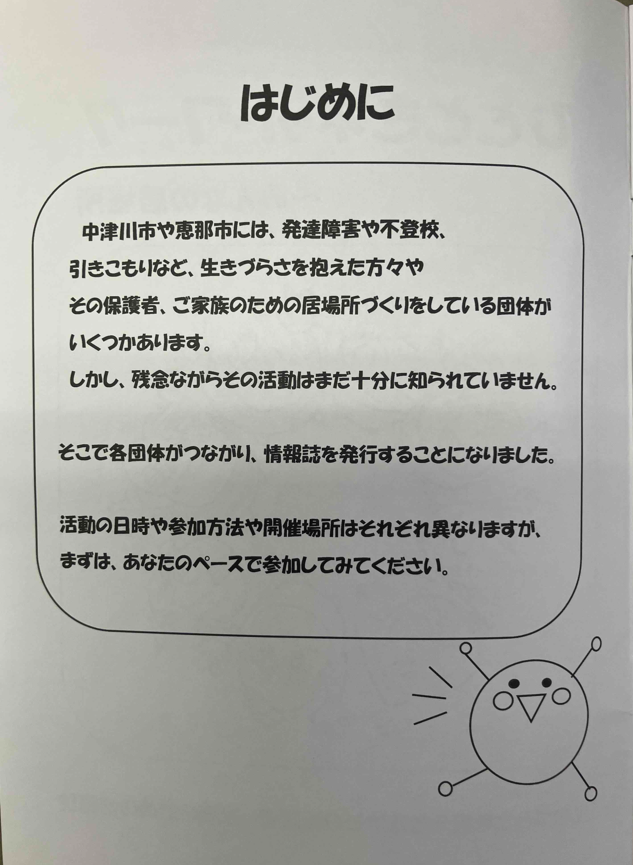 はじめに
中津川市や恵那市には、発達障害や不登校、
引きこもりなど、生きづらさを抱えた方々や
その保護者、ご家族のための居場所づくりをしている団体が
いくつかあります。
しかし、残念ながらその活動はまだ十分に知られていません。
そこで各団体がつながり、情報誌を発行することになりました。
活動の日時や参加方法や開催場所はそれぞれ異なりますが、
まずは、あなたのペースで参加してみてください。